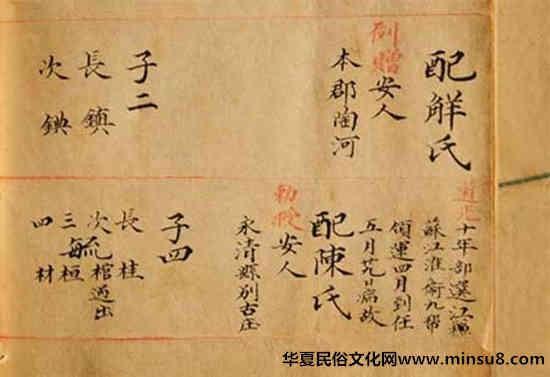 配觧氏
例贈安人
本郡陶河
子二
長鎮
次
道光十年部選江
蘇江淮衛九幫
領運四月到任
五月日病故
配陳氏
勅授安人
永清縣別古庄
子四
長桂
次棺過出
毓
三桓
四材
华夏民俗文化网www.minsu8.com